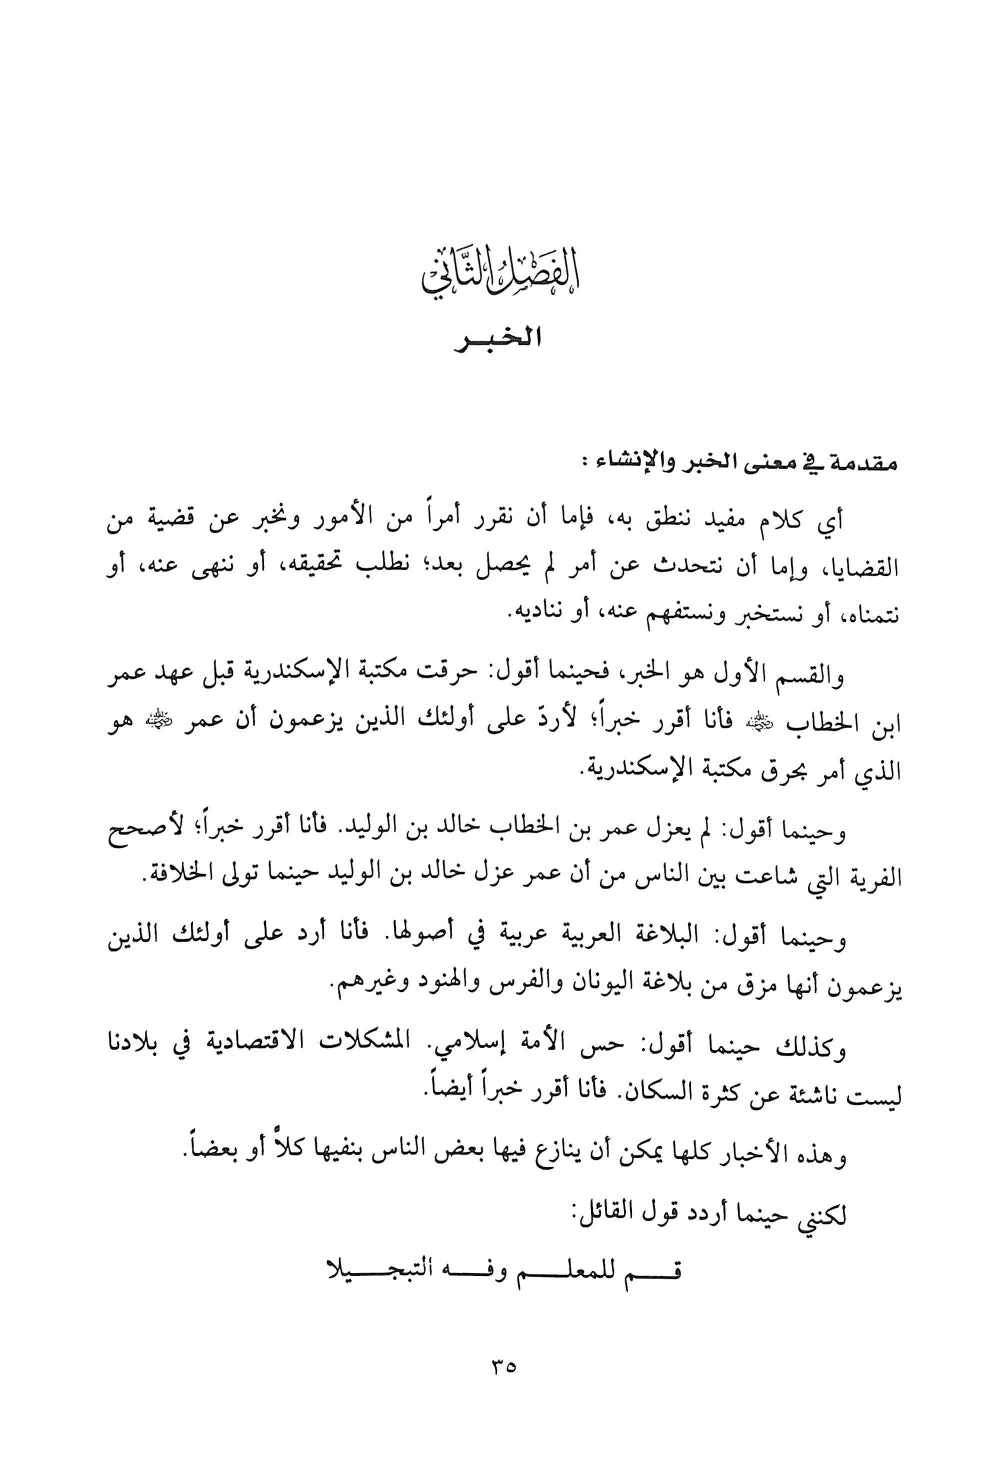 الفَصْلُ الثَّانِي
الخبر
مقدمة في معنى الخبر والإنشاء :
أي كلام مفيد ننطق به، فإما أن نقرر أمراً من الأمور ونخبر عن قضية من
القضايا، وإما أن نتحدث عن أمر لم يحصل بعد؛ نطلب تحقيقه، أو ننهى عنه، أو
نتمناه، أو نستخبر ونستفهم عنه، أو نناديه.
والقسم الأول هو الخبر، فحينما أقول: حرقت مكتبة الإسكندرية قبل عهد عمر
ابن الخطاب رضي الله عنه فأنا أقرر خبراً؛ لأردّ على أولئك الذين يزعمون أن عمر رضي الله عنه هو
الذي أمر بحرق مكتبة الإسكندرية.
وحينما أقول: لم يعزل عمر بن الخطاب خالد بن الوليد. فأنا أقرر خبراً؛ لأصحح
الفرية التي شاعت بين الناس من أن عمر عزل خالد بن الوليد حينما تولى الخلافة.
وحينما أقول: البلاغة العربية عربية في أصولها. فأنا أرد على أولئك الذين
يزعمون أنها مزق من بلاغة اليونان والفرس والهنود وغيرهم.
وكذلك حينما أقول: حس الأمة إسلامي. المشكلات الاقتصادية في بلادنا
ليست ناشئة عن كثرة السكان. فأنا أقرر خبراً أيضاً.
وهذه الأخبار كلها يمكن أن ينازع فيها بعض الناس بنفيها كلاً أو بعضاً.
لكنني حينما أردد قول القائل:
قـــم للمعلـــم وفـــه التبجـــيلا
٣٥